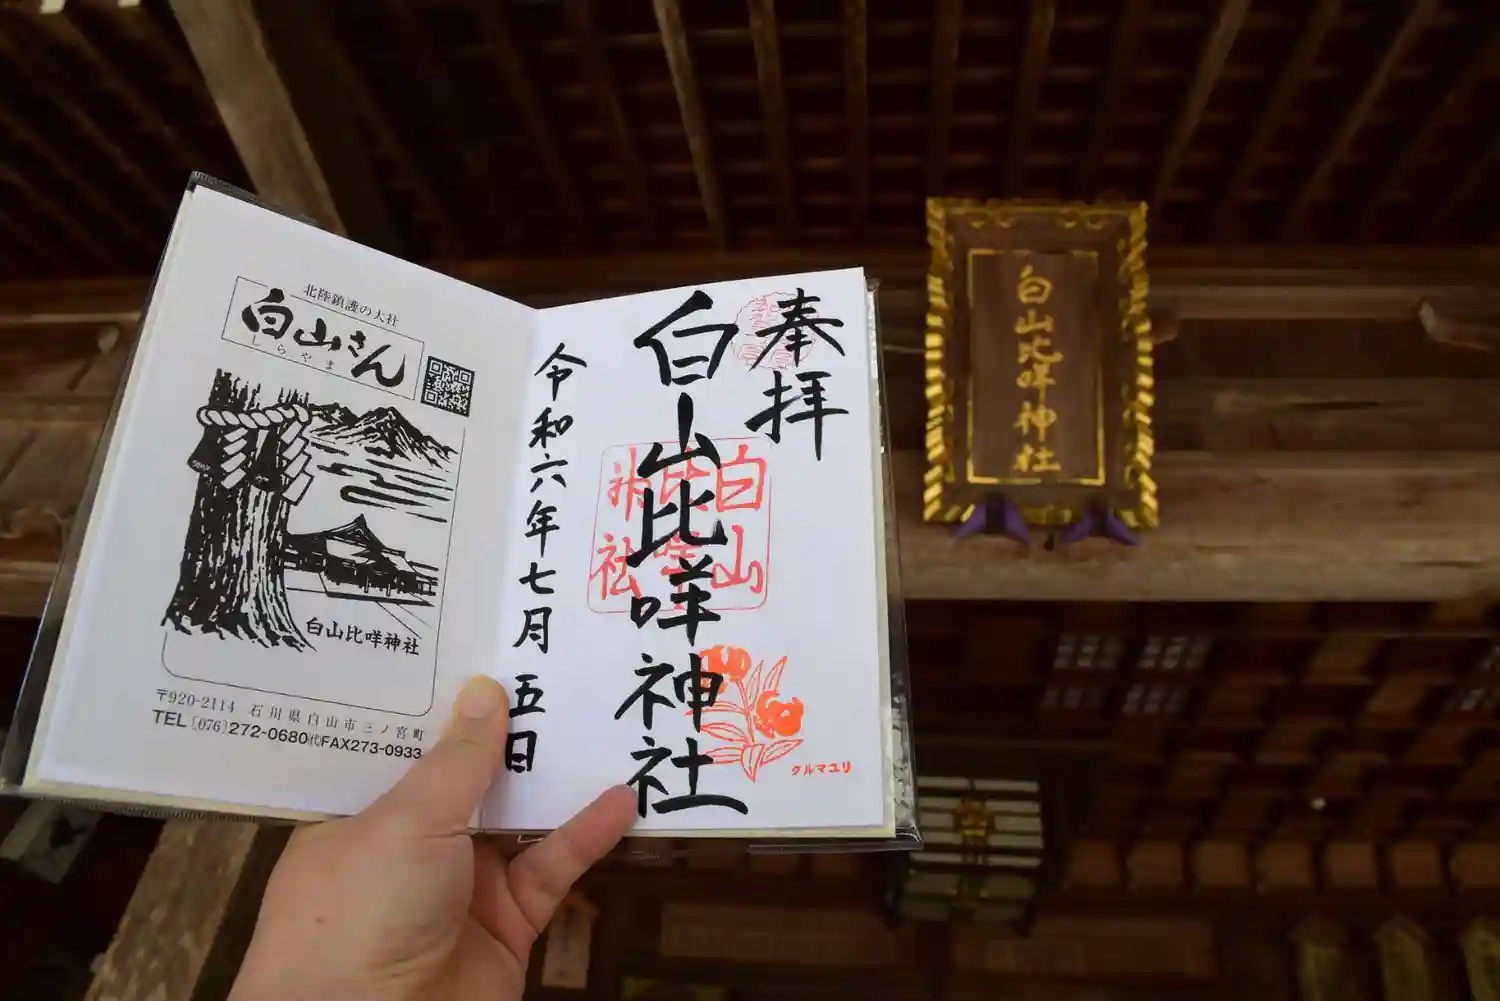 北陸鎮護の大社
白山さん
しらやま
白山比咩神社
〒920-2114 石川県白山市三ノ宮町
TEL〔076〕272-0680㈹FAX273-0933
奉拝
白山比咩神社
白山
比咩
神社
クルマユリ
令和六年七月五日
白山比咩神社